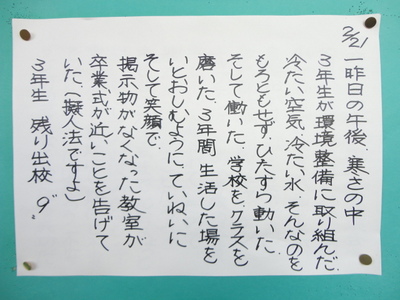 2/21
一昨日の午後、寒さの中
3年生が環境整備に取り組んだ。
冷たい空気、冷たい水、そんなのを
もろともせず、ひたすら動いた。
そして働いた。学校を、クラスを
磨いた。3年間 生活した場を
いとおしむように、ていねいに
そして笑顔で。
掲示物がなくなった教室が
卒業式が近いことを告げて
いた。(擬人法ですよ)
3年生 残り出校 9"